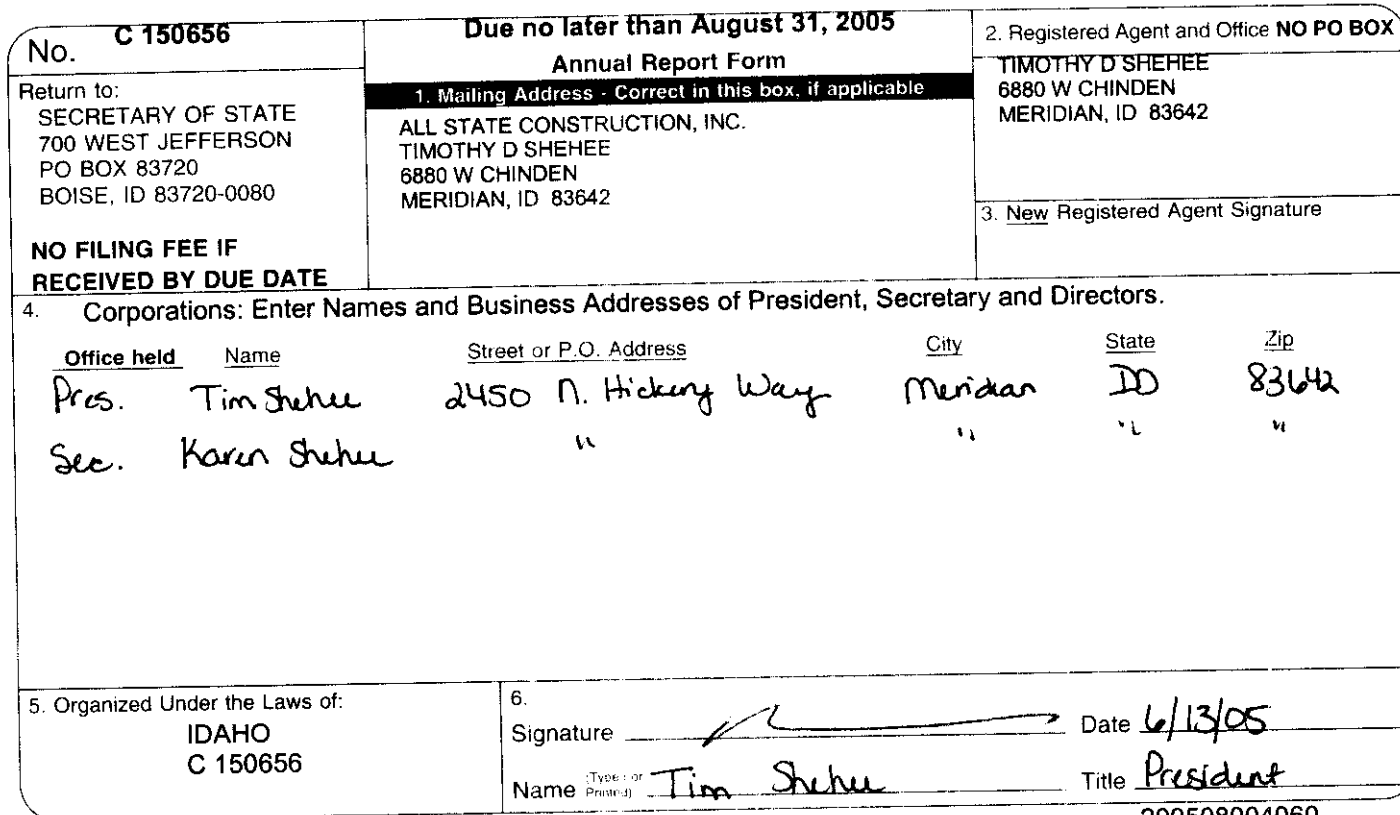 No. C 150656
Return to:
SECRETARY OF STATE
700 WEST JEFFERSON
PO BOX 83720
BOISE, ID 83720-0080
NO FILING FEE IF
RECEIVED BY DUE DATE
Due no later than August 31, 2005
Annual Report Form
1. Mailing Address - Correct in this box, if applicable
ALL STATE CONSTRUCTION, INC.
TIMOTHY D SHEHEE
6880 W CHINDEN
MERIDIAN, ID 83642
2. Registered Agent and Office NO PO BOX
TIMOTHY D SHEHEE
6880 W CHINDEN
MERIDIAN, ID 83642
3. New Registered Agent Signature
4. Corporations: Enter Names and Business Addresses of President, Secretary and Directors.
Office held Name Street or P.O. Address City State Zip
Pres. Tim Shehee 2450 N. Hickory Way Meridian ID 83642
Sec. Karen Shehee " " " "
5. Organized Under the Laws of:
IDAHO
C 150656
6.
Signature Date 6/13/05
Name (Type or Printed) Tim Shehee Title President